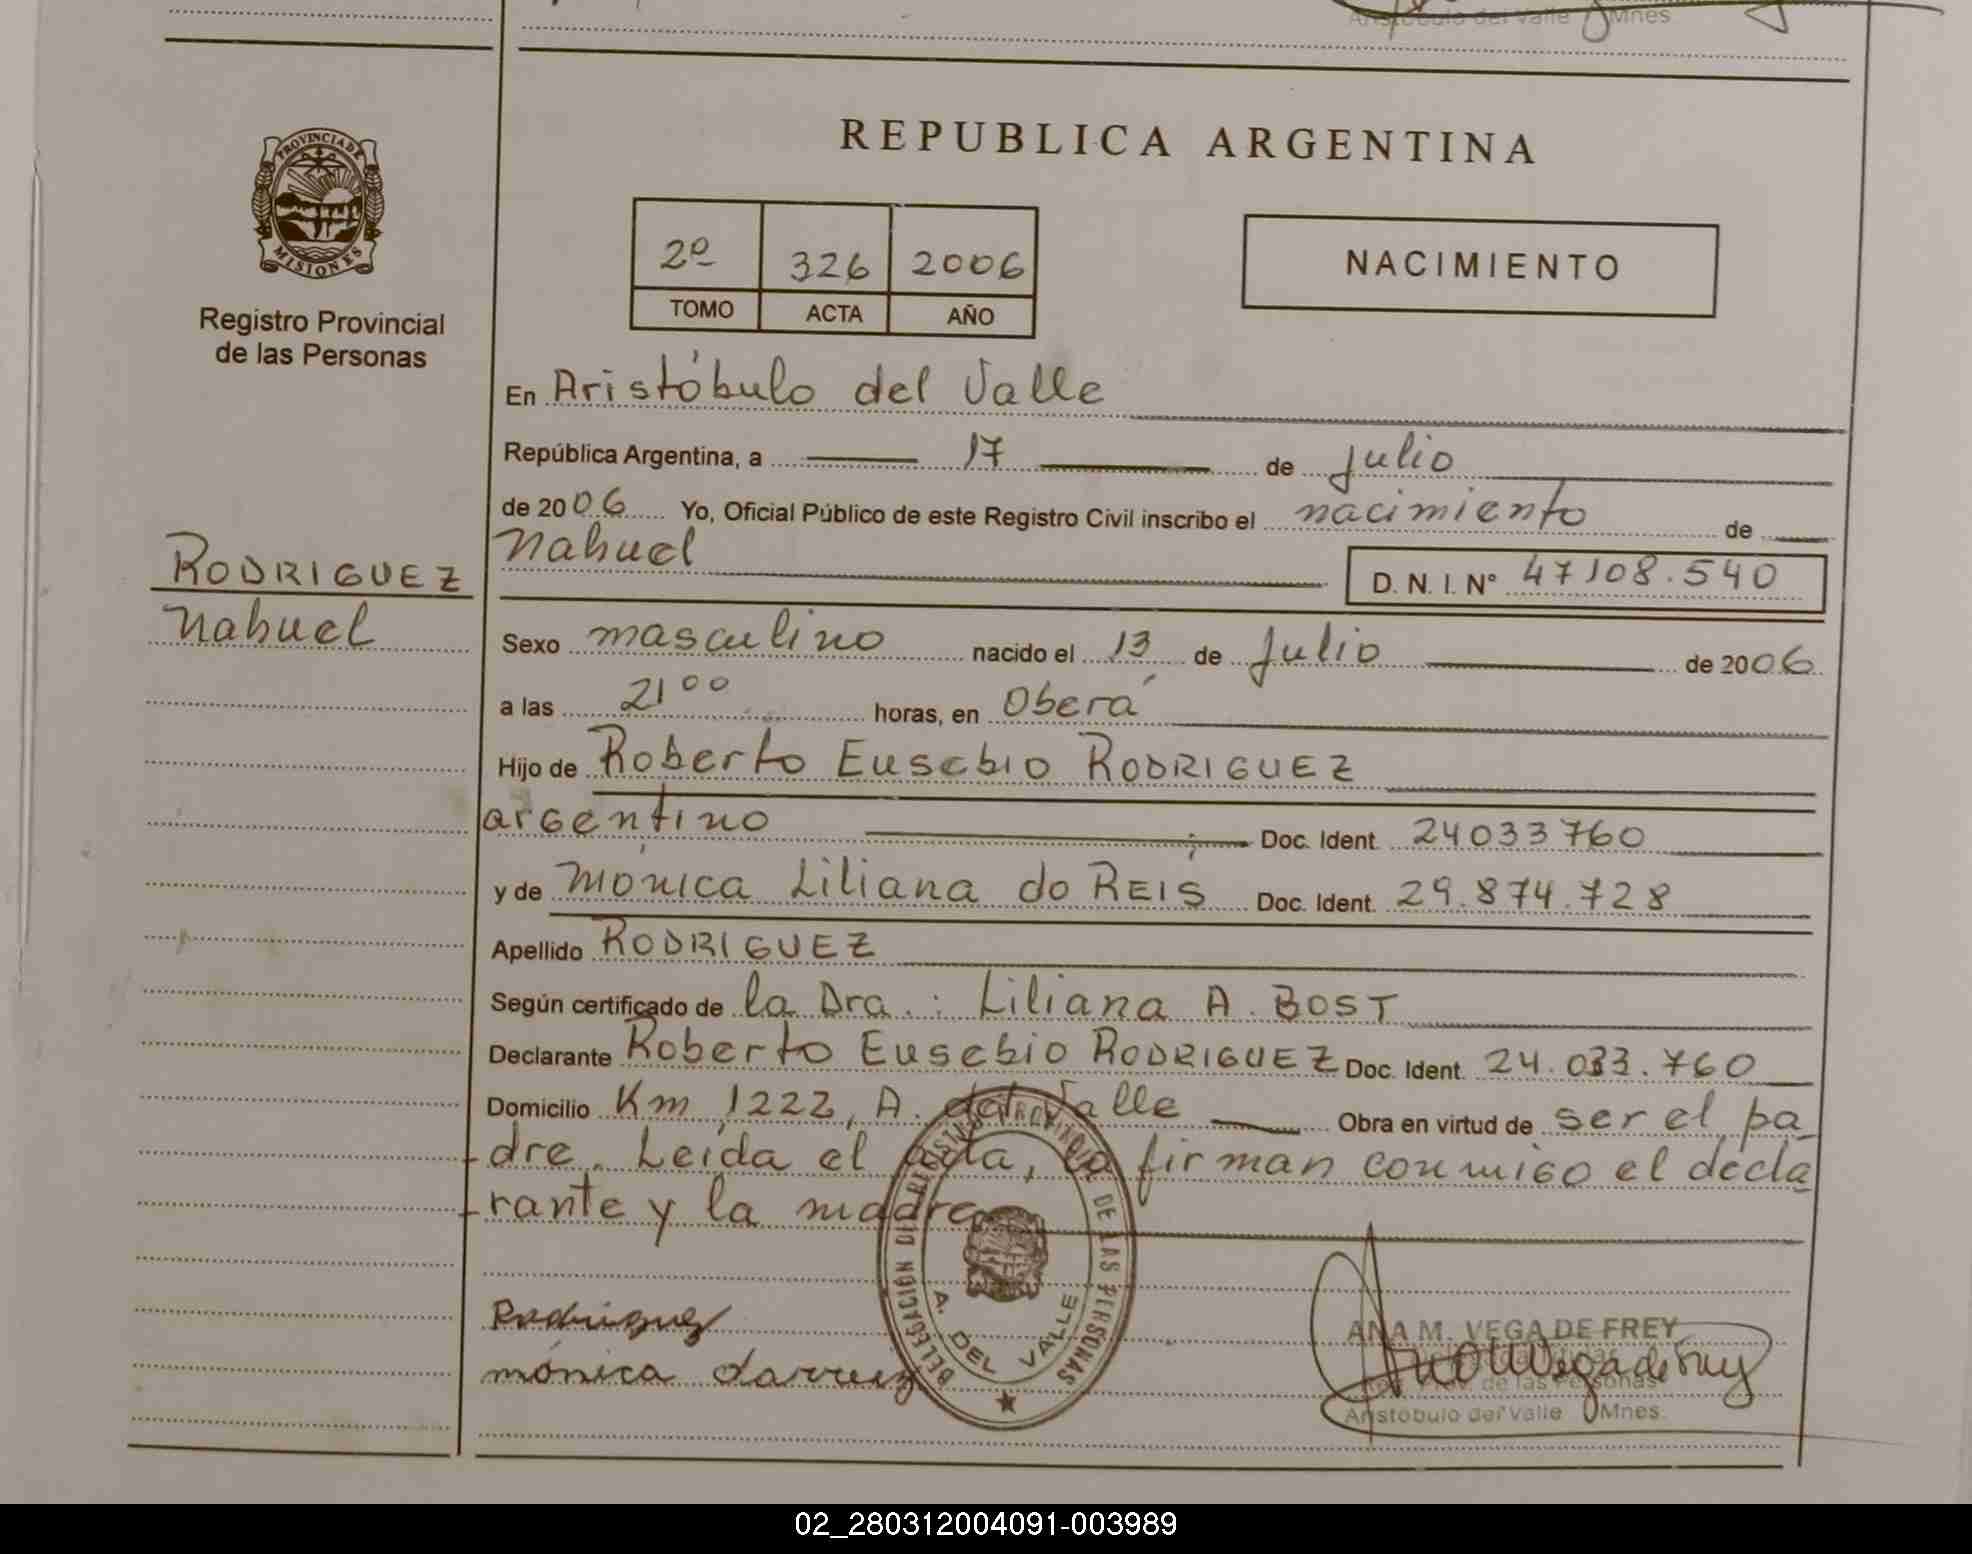 Aristóbulo del Valle Mnes
PROVINCIA DE
MISIONES
Registro Provincial
de las Personas
REPUBLICA ARGENTINA
2º 326 2006
TOMO ACTA AÑO
NACIMIENTO
En Aristóbulo del Valle
República Argentina, a 17 de julio
de 2006 Yo, Oficial Público de este Registro Civil inscribo el nacimiento de
RODRIGUEZ
Nahuel
Nahuel D. N. I. Nº 47108.540
Sexo masculino nacido el 13 de julio de 2006
a las 21 00 horas, en Oberá
Hijo de Roberto Eusebio RODRIGUEZ
argentino Doc. Ident. 24033760
y de Mónica Liliana do REIS Doc. Ident. 29.874.728
Apellido RODRIGUEZ
Según certificado de la Dra.: Liliana A. BOST
Declarante Roberto Eusebio RODRIGUEZ Doc. Ident. 24.033.760
Domicilio Km 1222, A. del Valle Obra en virtud de ser el pa-
-dre. Leída el acta, la firman conmigo el decla-
-rante y la madre
DELEGACIÓN DEL REGISTRO PROVINCIAL DE LAS PERSONAS
A. DEL VALLE
Rodriguez
mónica
ANA M. VEGA DE FREY
Prov. de las Personas
Aristóbulo del Valle Mnes.
02_280312004091-003989